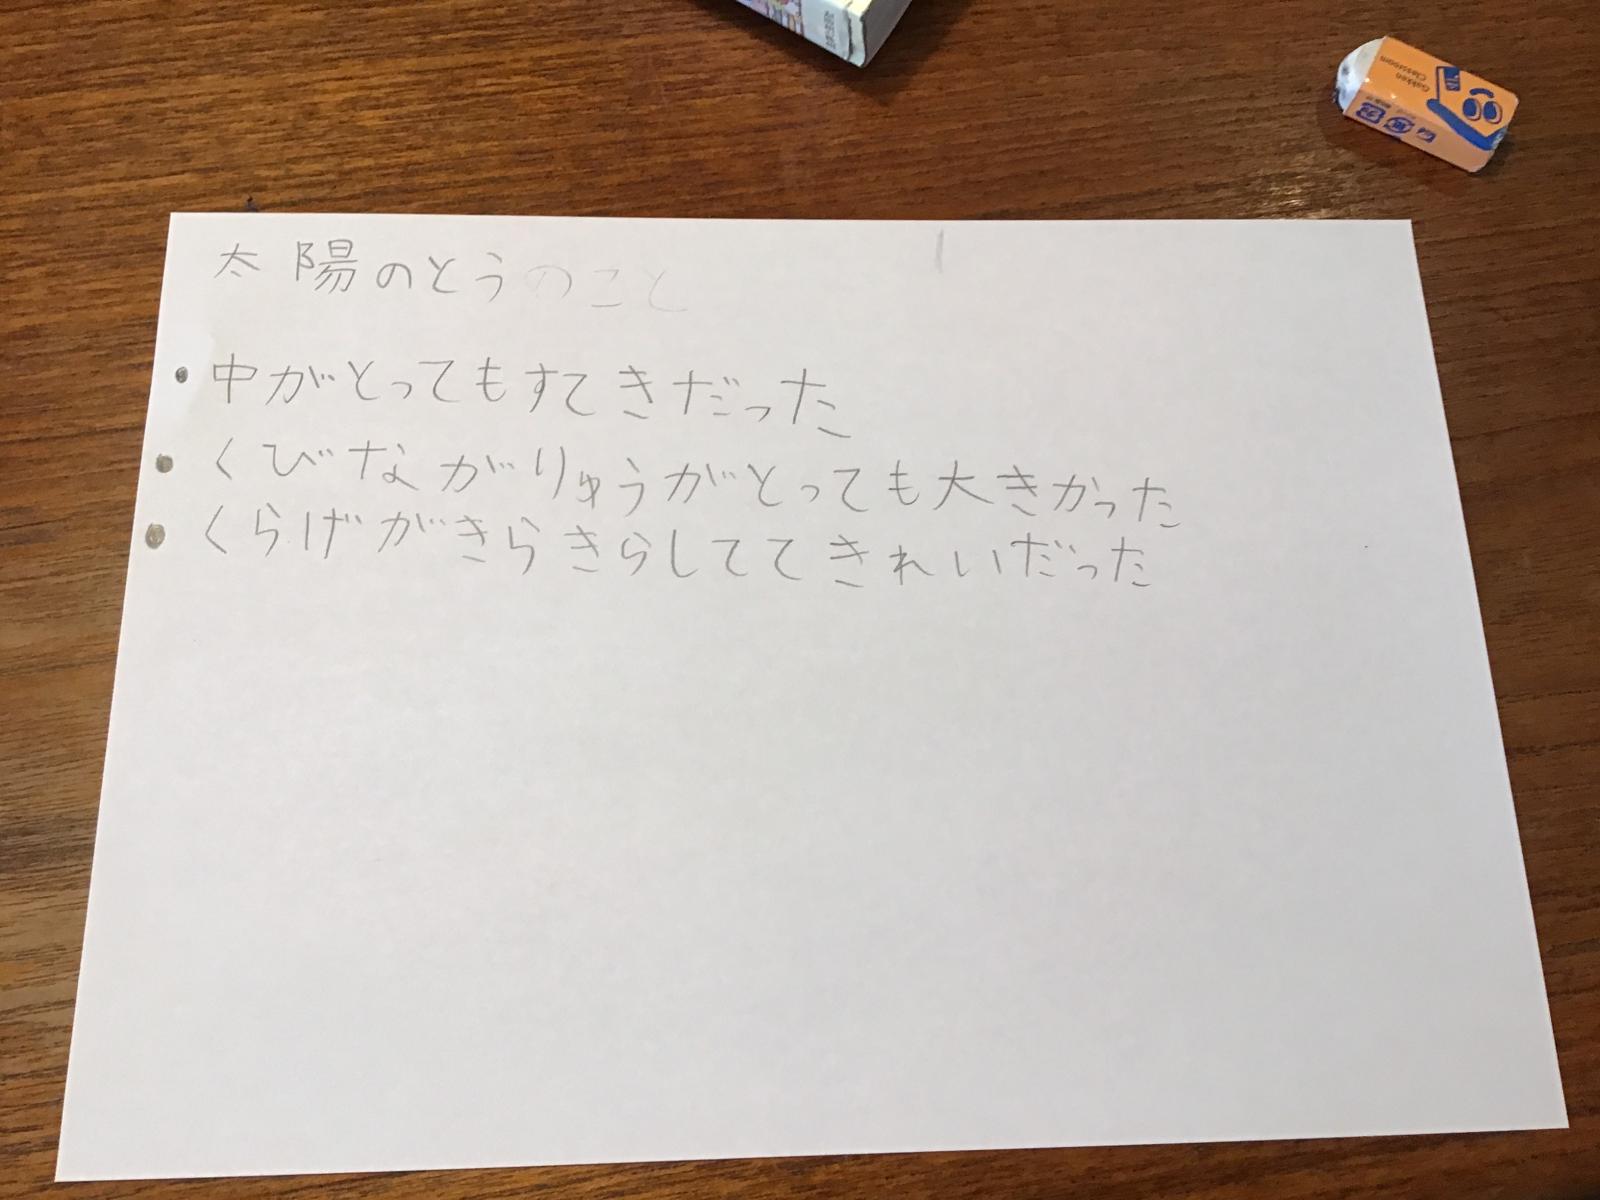 太陽のとうのこと
・中がとってもすてきだった
・くびながりゅうがとっても大きかった
・くらげがきらきらしててきれいだった
Gakken
Classroom